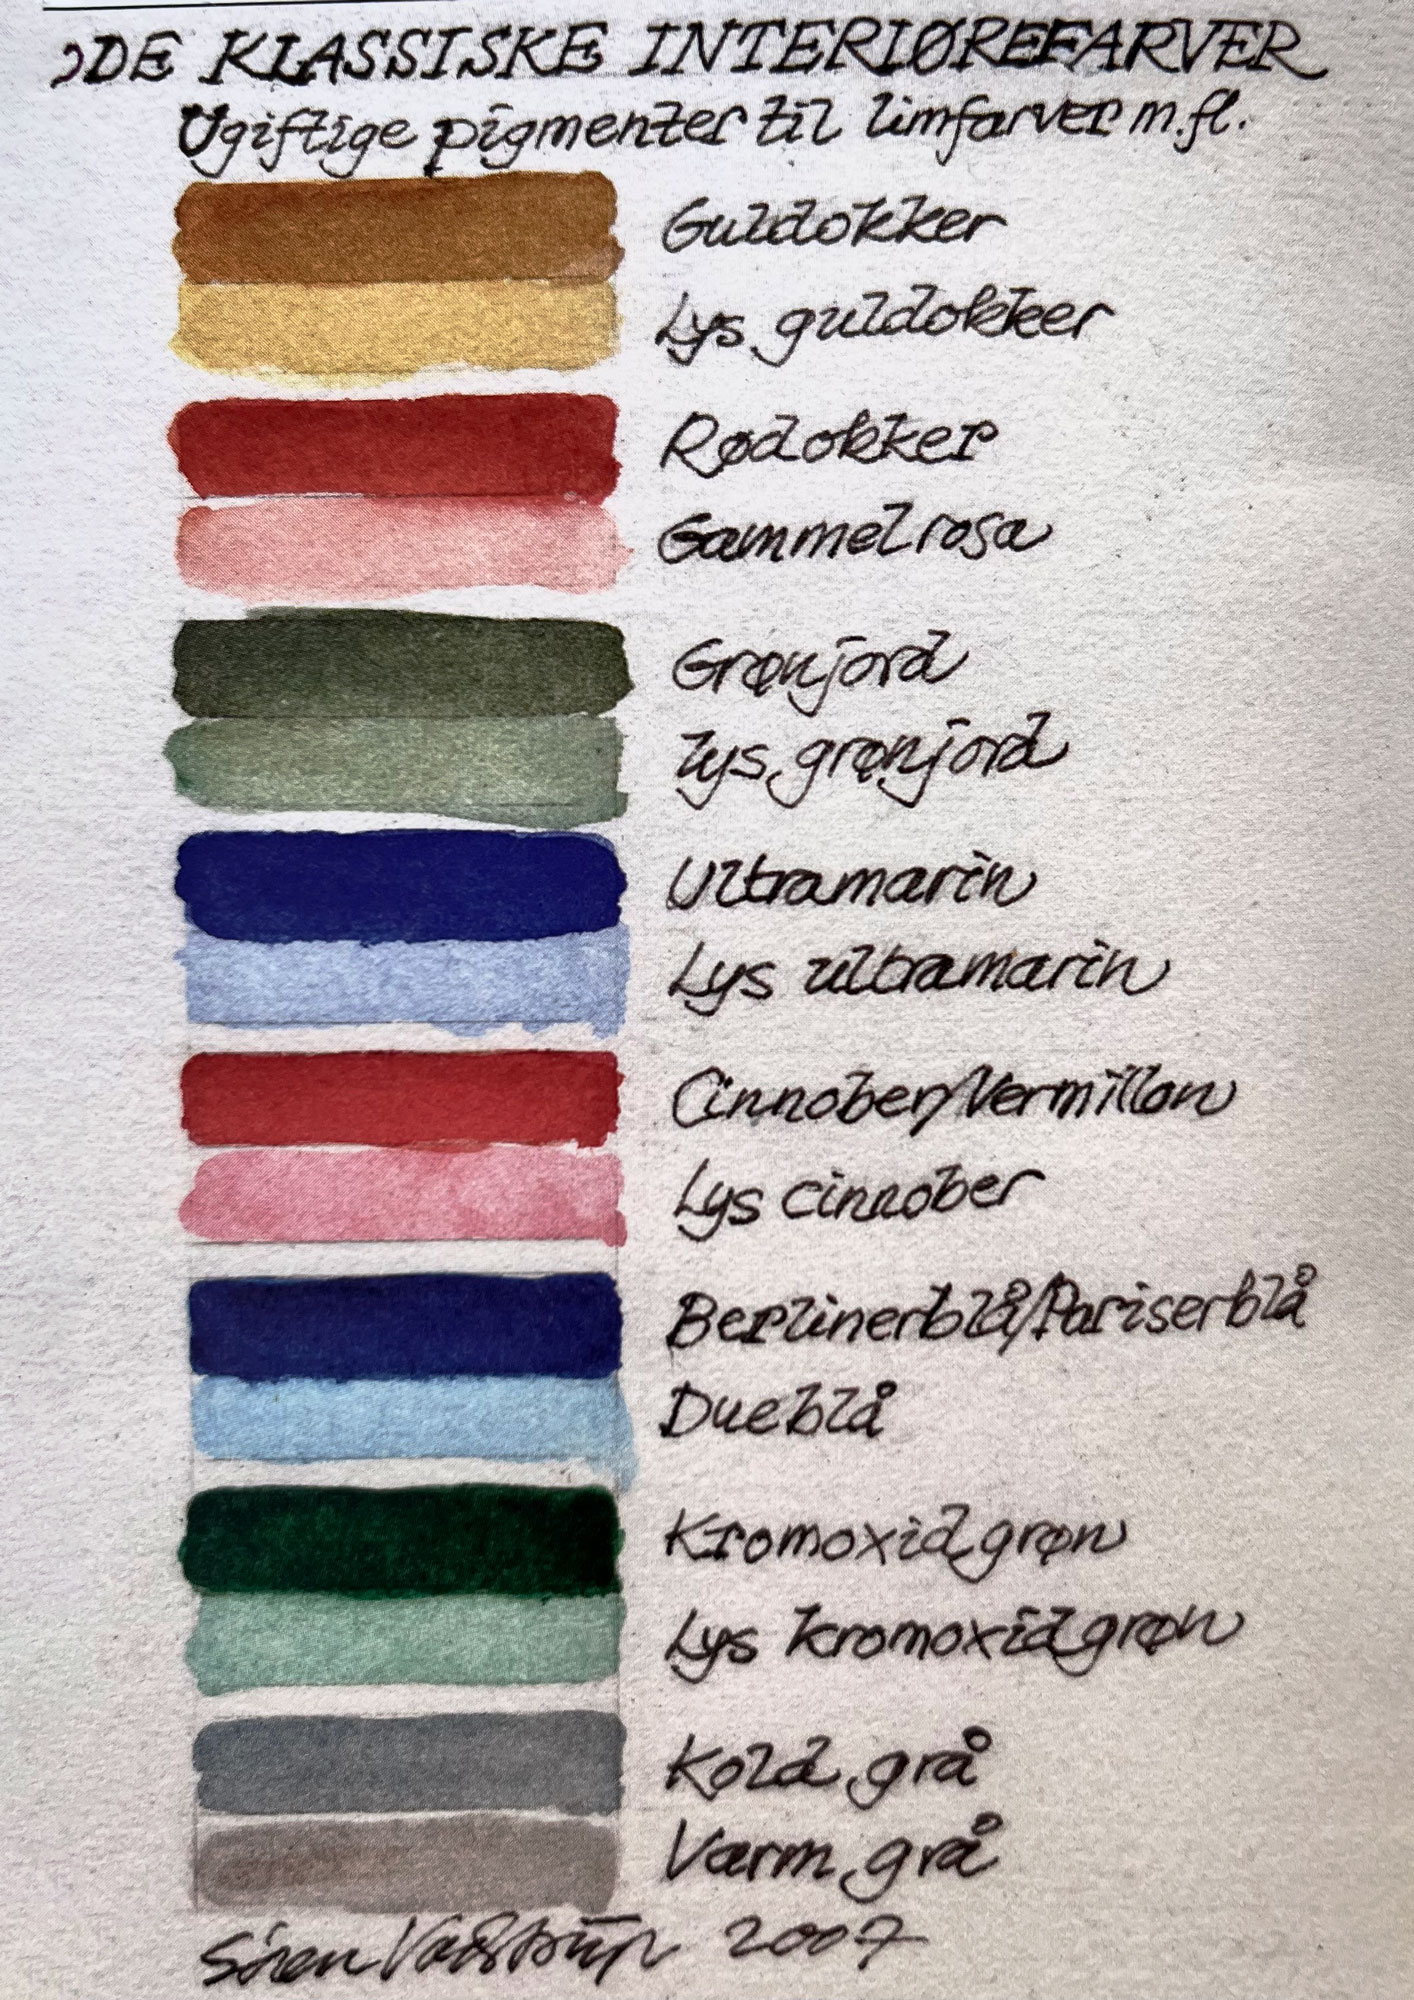 DE KLASSISKE INTERIØRFARVER
Ugiftige pigmenter til limfarver m.fl.
Guldokker
Lys guldokker
Rødokker
Gammelrosa
Grønjord
Lys grønjord
Ultramarin
Lys ultramarin
Cinnober/Vermillon
Lys cinnober
Berlinerblå/Pariserblå
Dueblå
Kromoxidgrøn
Lys kromoxidgrøn
Kold grå
Varm grå
Søren Vadstrup 2007